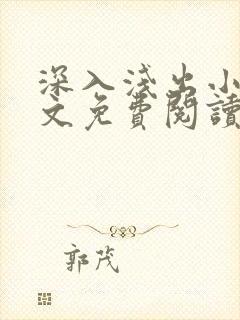 深入浅出小
文免費閱讀
郭茂